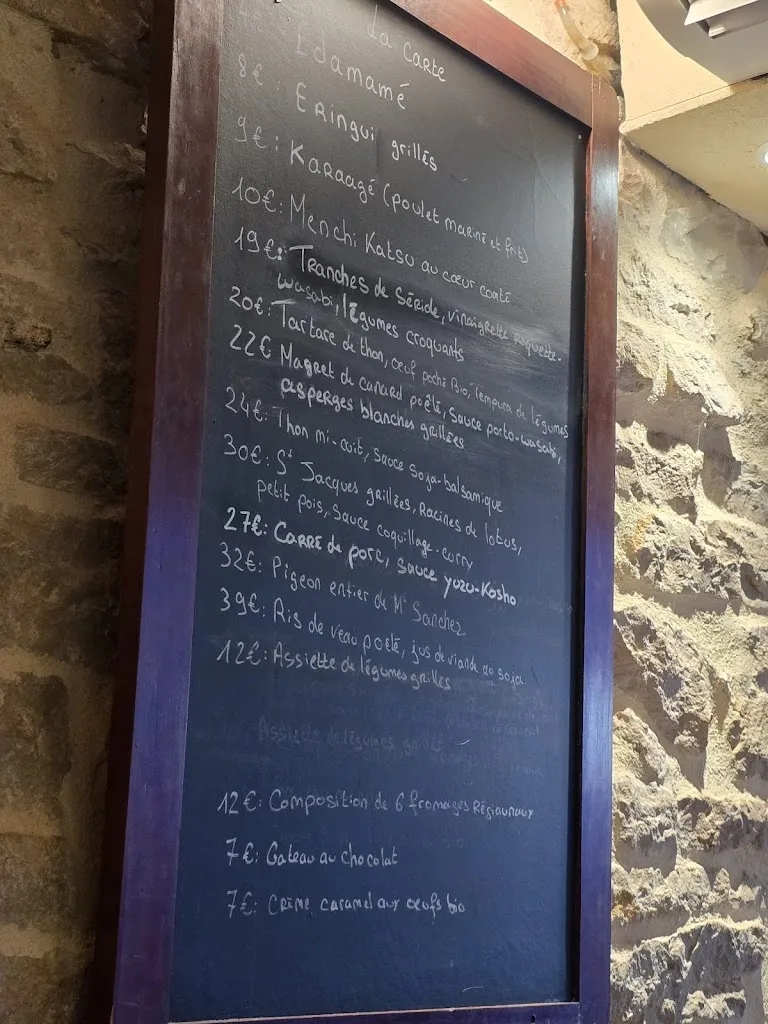 La Carte
Edamamé
8€: Eringui grillés
9€: Karaagé (poulet mariné et frit)
10€: Menchi Katsu au cœur comté
19€: Tranches de Sériole, vinaigrette roquette-
wasabi, légumes croquants
20€: Tartare de thon, œuf poché Bio, Tempura de légumes
22€ Magret de canard poêlé, sauce porto-wasabi,
asperges blanches grillées
24€: Thon mi-cuit, sauce soja-balsamique
30€: St Jacques grillées, Racines de lotus,
petit pois, sauce coquillage-curry
27€: Carré de porc, sauce yuzu-Kosho
32€: Pigeon entier de Mr Sanchez
39€: Ris de veau poêlé, jus de viande au soja
12€: Assiette de légumes grillés
Assiette de légumes grillés
12€: Composition de 6 fromages Régiaunaux
7€: Gateau au chocolat
7€: Crème caramel aux œufs bio